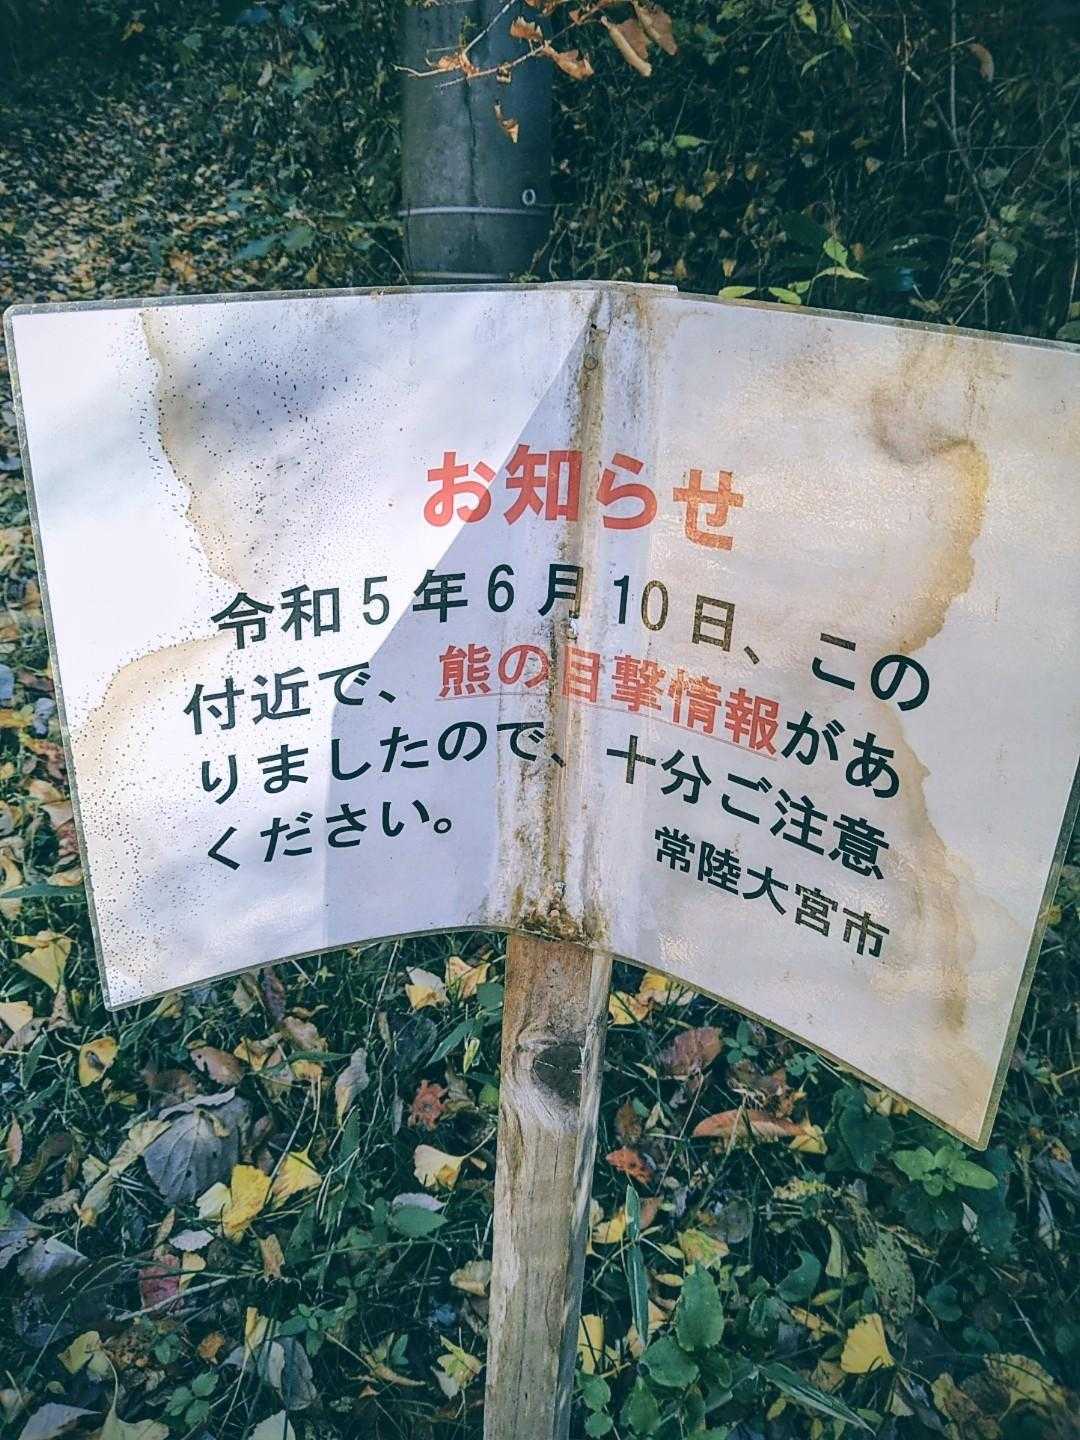 お知らせ
令和5年6月10日、この
付近で、熊の目撃情報があ
りましたので、十分ご注意
ください。
常陸大宮市